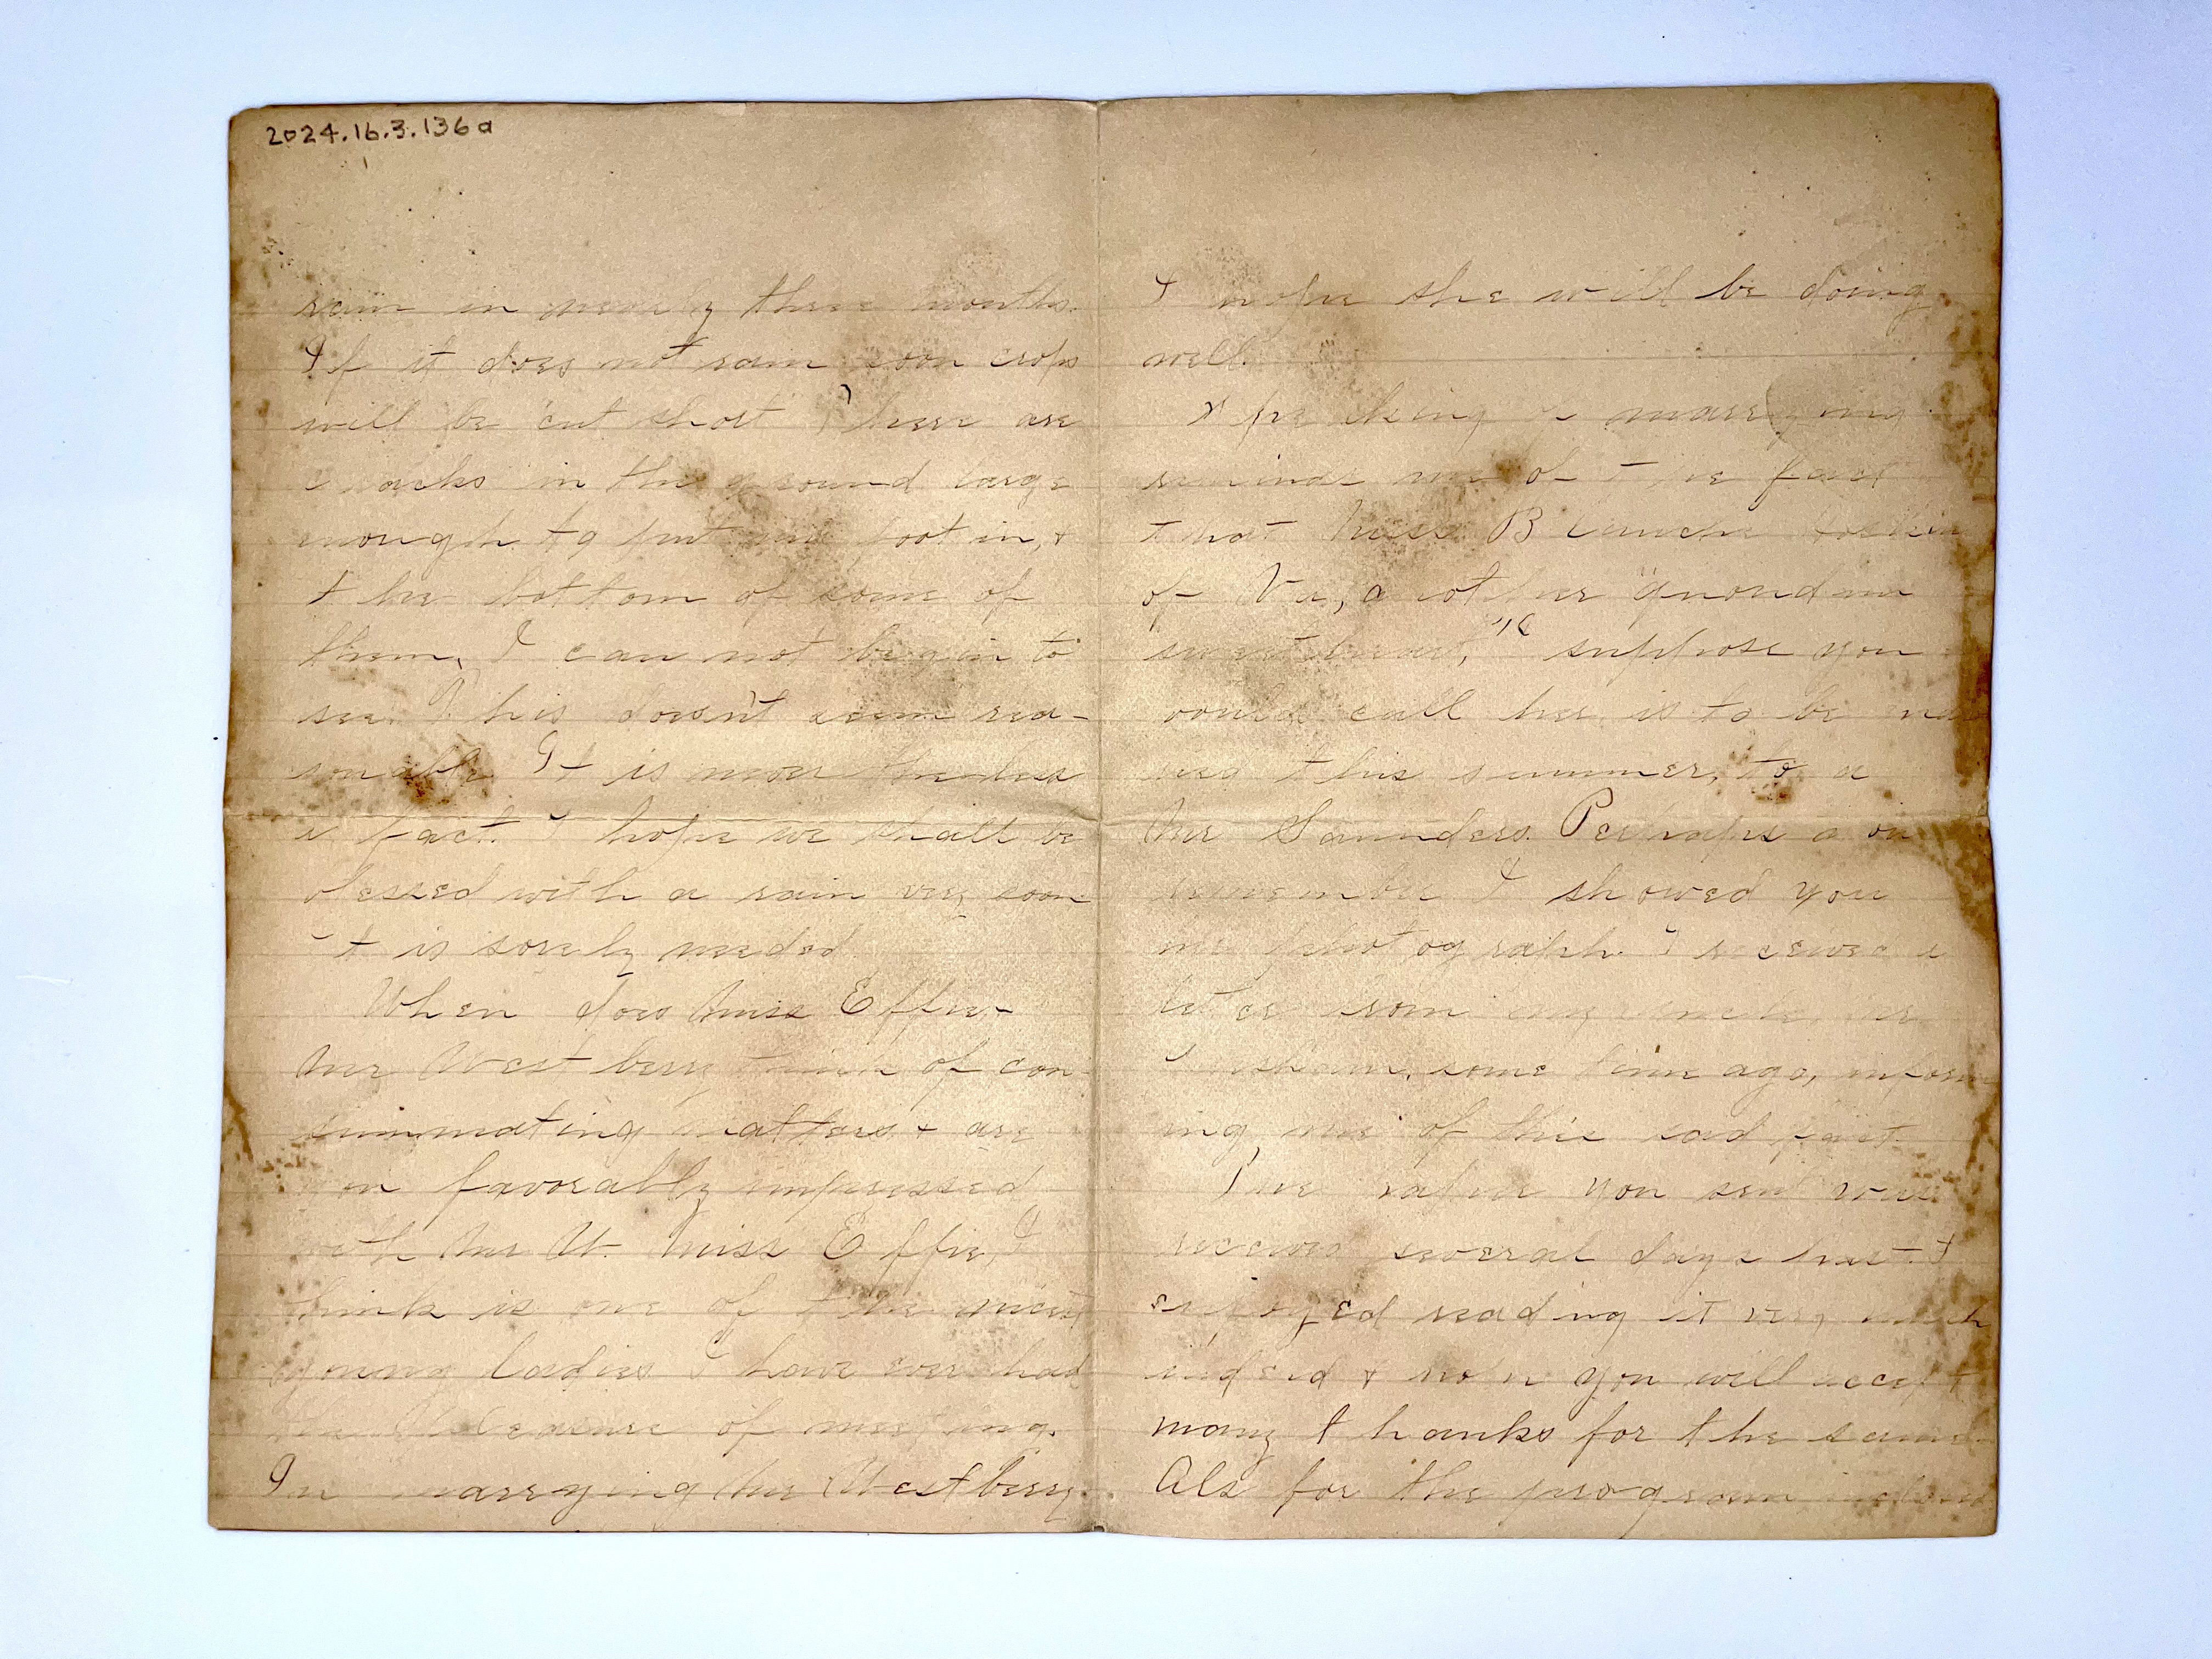 2024.16.3.136a
rain in nearly three months.
If it does not rain soon crops
will be "cut short" There are
cracks in the ground large
enough to put my foot in, &
the bottom of some of
them, I can not begin to
see. This doesn't seem rea-
sonable. It is nevertheless
a fact. I hope we shall be
blessed with a rain very soon
It is sorely needed
When does Miss Effie &
Mr Westberry think of con-
summating matters & are
you favorably impressed
with Mr W. Miss Effie, I
think is one of the nicest
young ladies I have ever had
the pleasure of meeting.
In marrying Mr Westberry
I hope she will be doing
well.
Speaking of marrying
reminds me of the fact
that Miss Blanche
of Va, another "quondam
sweetheart," I suppose you
would call her, is to be mar
ried this summer, to a
Mr Saunders. Perhaps you
remember I showed you
her photograph. I received a
letter from my uncle,
some time ago, inform
ing me of this sad fact.
The paper you sent was
received several days hence. I
enjoyed reading it very much
indeed & now you will accept
many thanks for the same
Als for the program